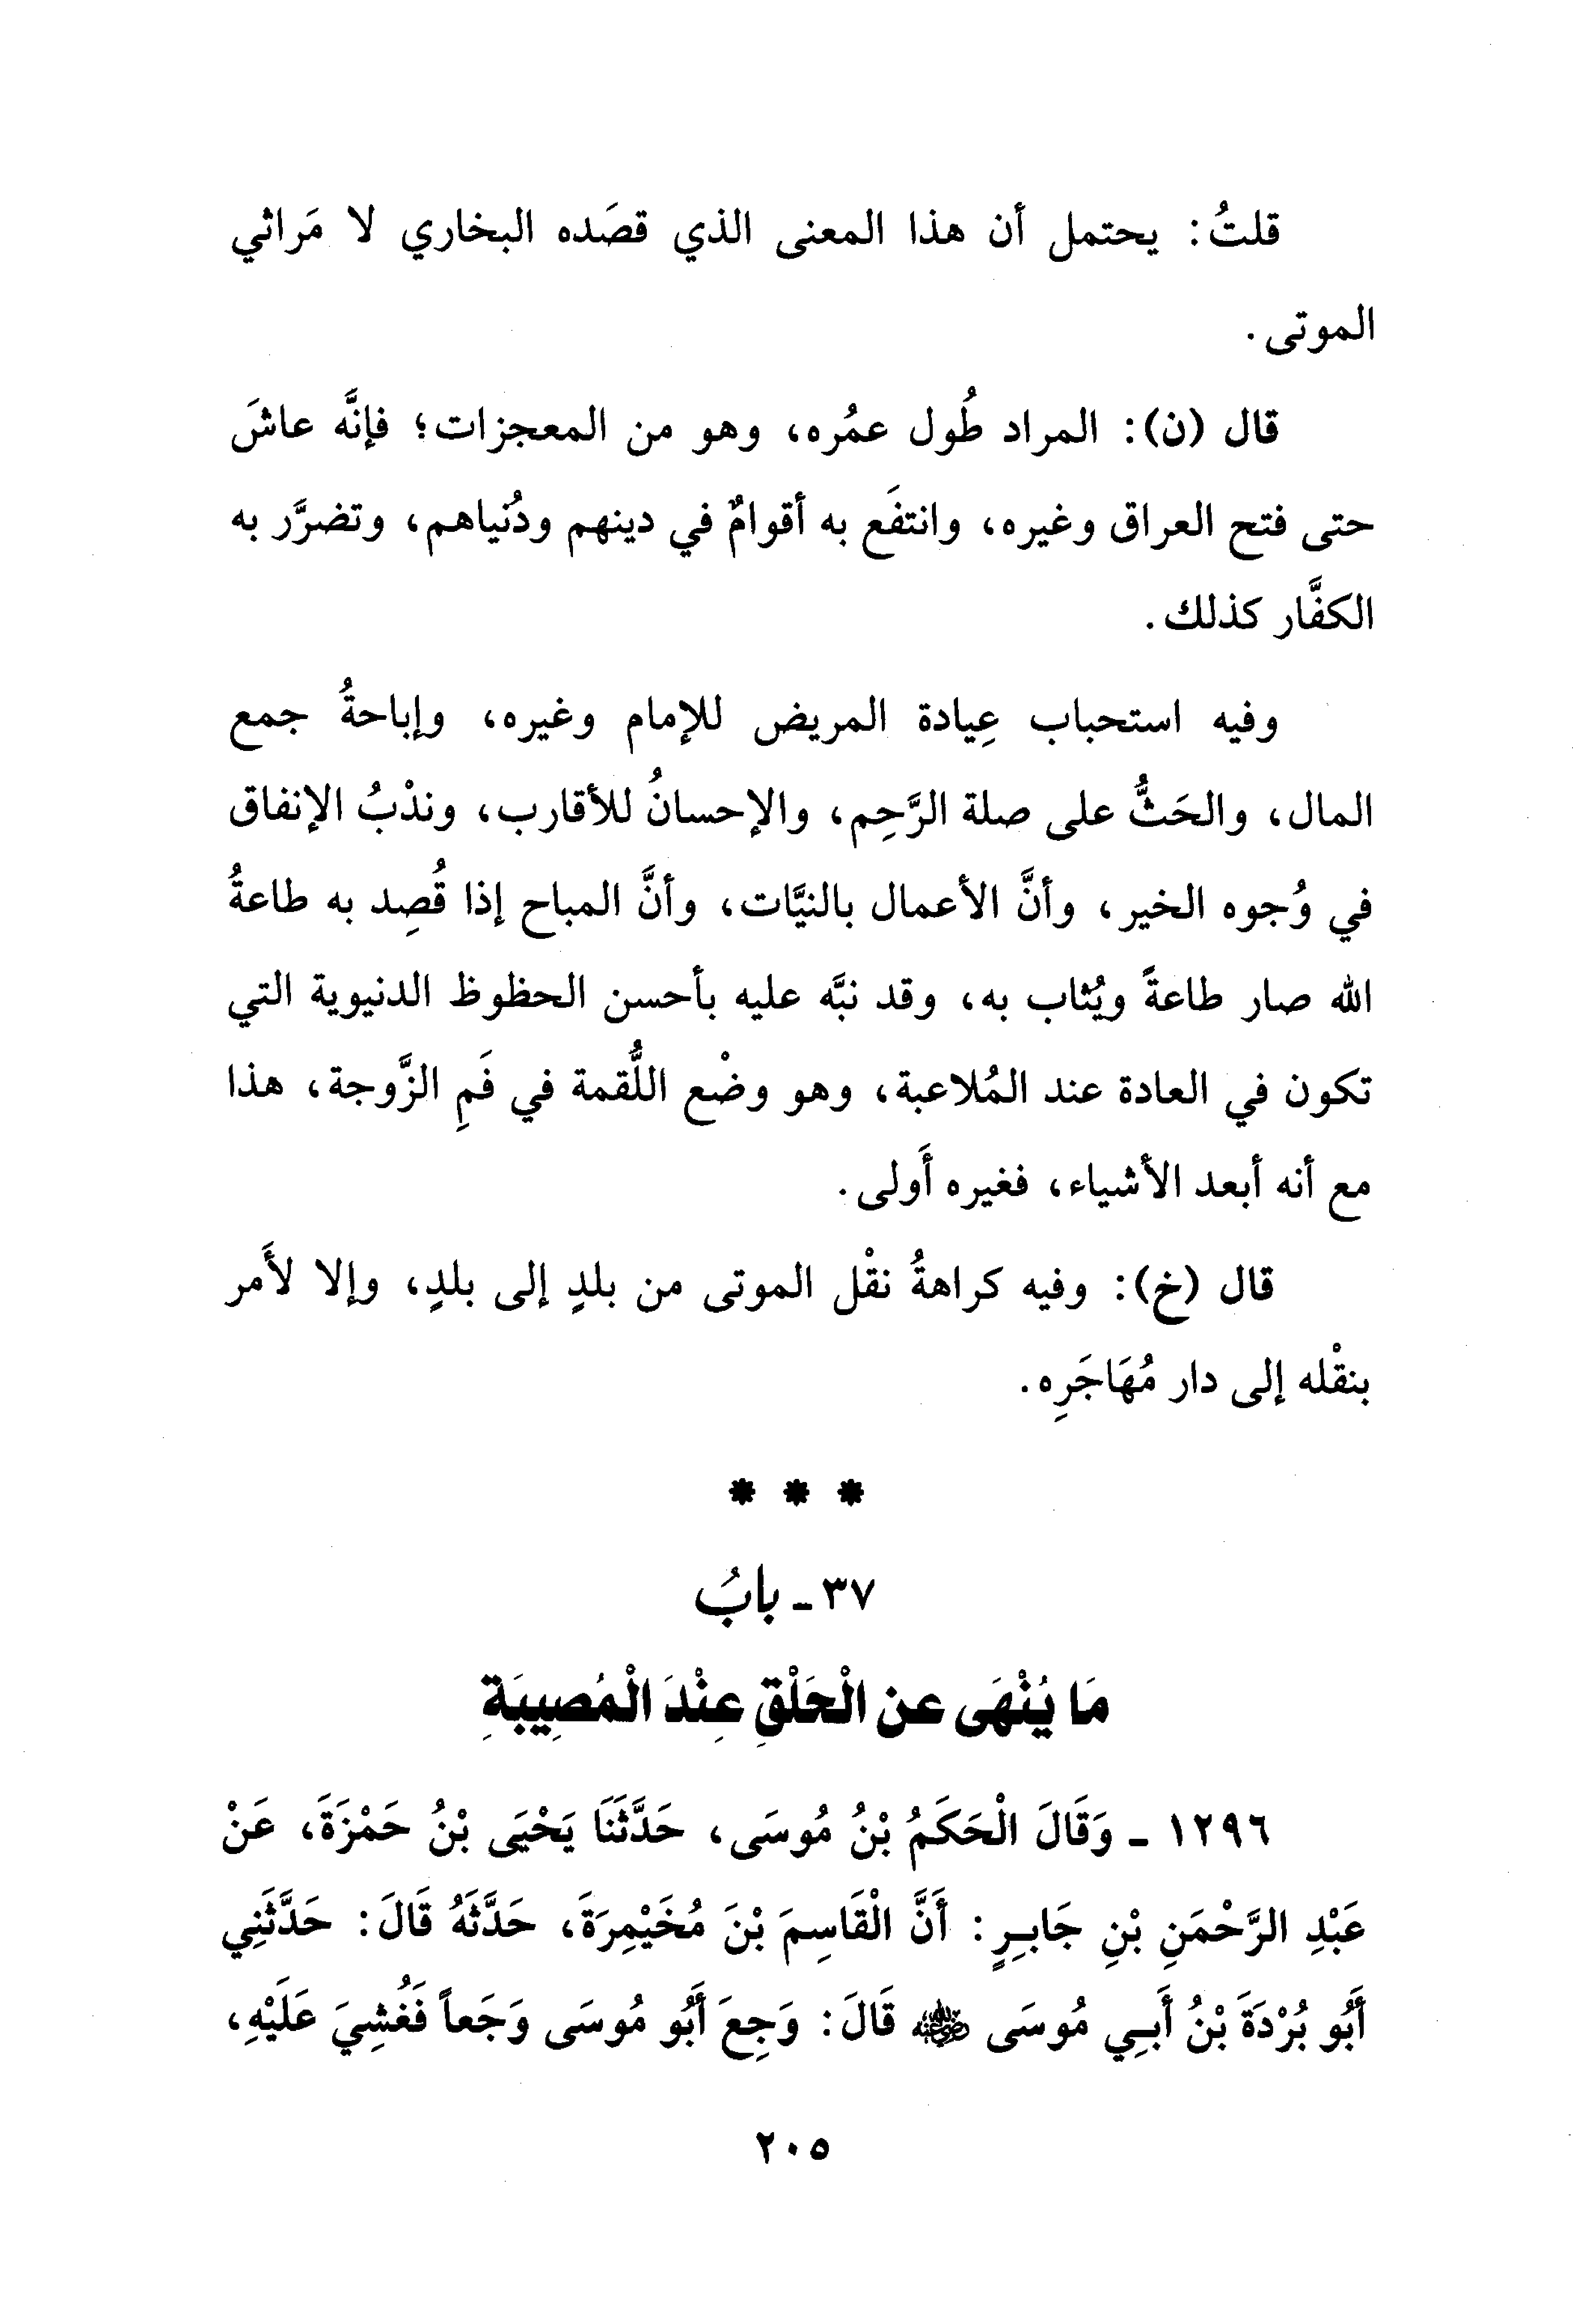 قلتُ: يحتمل أن هذا المعنى الذي قصَده البخاري لا مَراثي
الموتى.
قال (ن): المراد طُول عمُره، وهو من المعجزات؛ فإنَّه عاشَ
حتى فتح العراق وغيره، وانتفَع به أقوامٌ في دينهم ودُنياهم، وتضرَّر به
الكفَّار كذلك.
وفيه استحباب عِيادة المريض للإمام وغيره، وإباحةُ جمع
المال، والحَثُّ على صلة الرَّحِم، والإحسانُ للأقارب، وندْبُ الإنفاق
في وُجوه الخير، وأنَّ الأعمال بالنيَّات، وأنَّ المباح إذا قُصِد به طاعةُ
الله صار طاعةً ويُثاب به، وقد نبَّه عليه بأحسن الحظوظ الدنيوية التي
تكون في العادة عند المُلاعبة، وهو وضْع اللُّقمة في فَمِ الزَّوجة، هذا
مع أنه أبعد الأشياء، فغيره أَولى.
قال (خ): وفيه كراهةُ نقْل الموتى من بلدٍ إلى بلدٍ، وإلا لأَمر
بنقْله إلى دار مُهَاجَرِه.
* * *
٣٧ - بابُ
مَا يُنْهَى عن الْحَلْقِ عِنْدَ الْمُصِيبَةِ
١٢٩٦ - وَقَالَ الْحَكَمُ بْنُ مُوسَى، حَدَّثَنَا يَحْيَى بْنُ حَمْزَةَ، عَنْ
عَبْدِ الرَّحْمَنِ بْنِ جَابِرٍ: أَنَّ الْقَاسِمَ بْنَ مُخَيْمِرَةَ، حَدَّثَهُ قَالَ: حَدَّثَنِي
أَبُو بُرْدَةَ بْنُ أَبِي مُوسَى ﵁ قَالَ: وَجِعَ أَبُو مُوسَى وَجَعاً فَغُشِيَ عَلَيْهِ،
٢٠٥